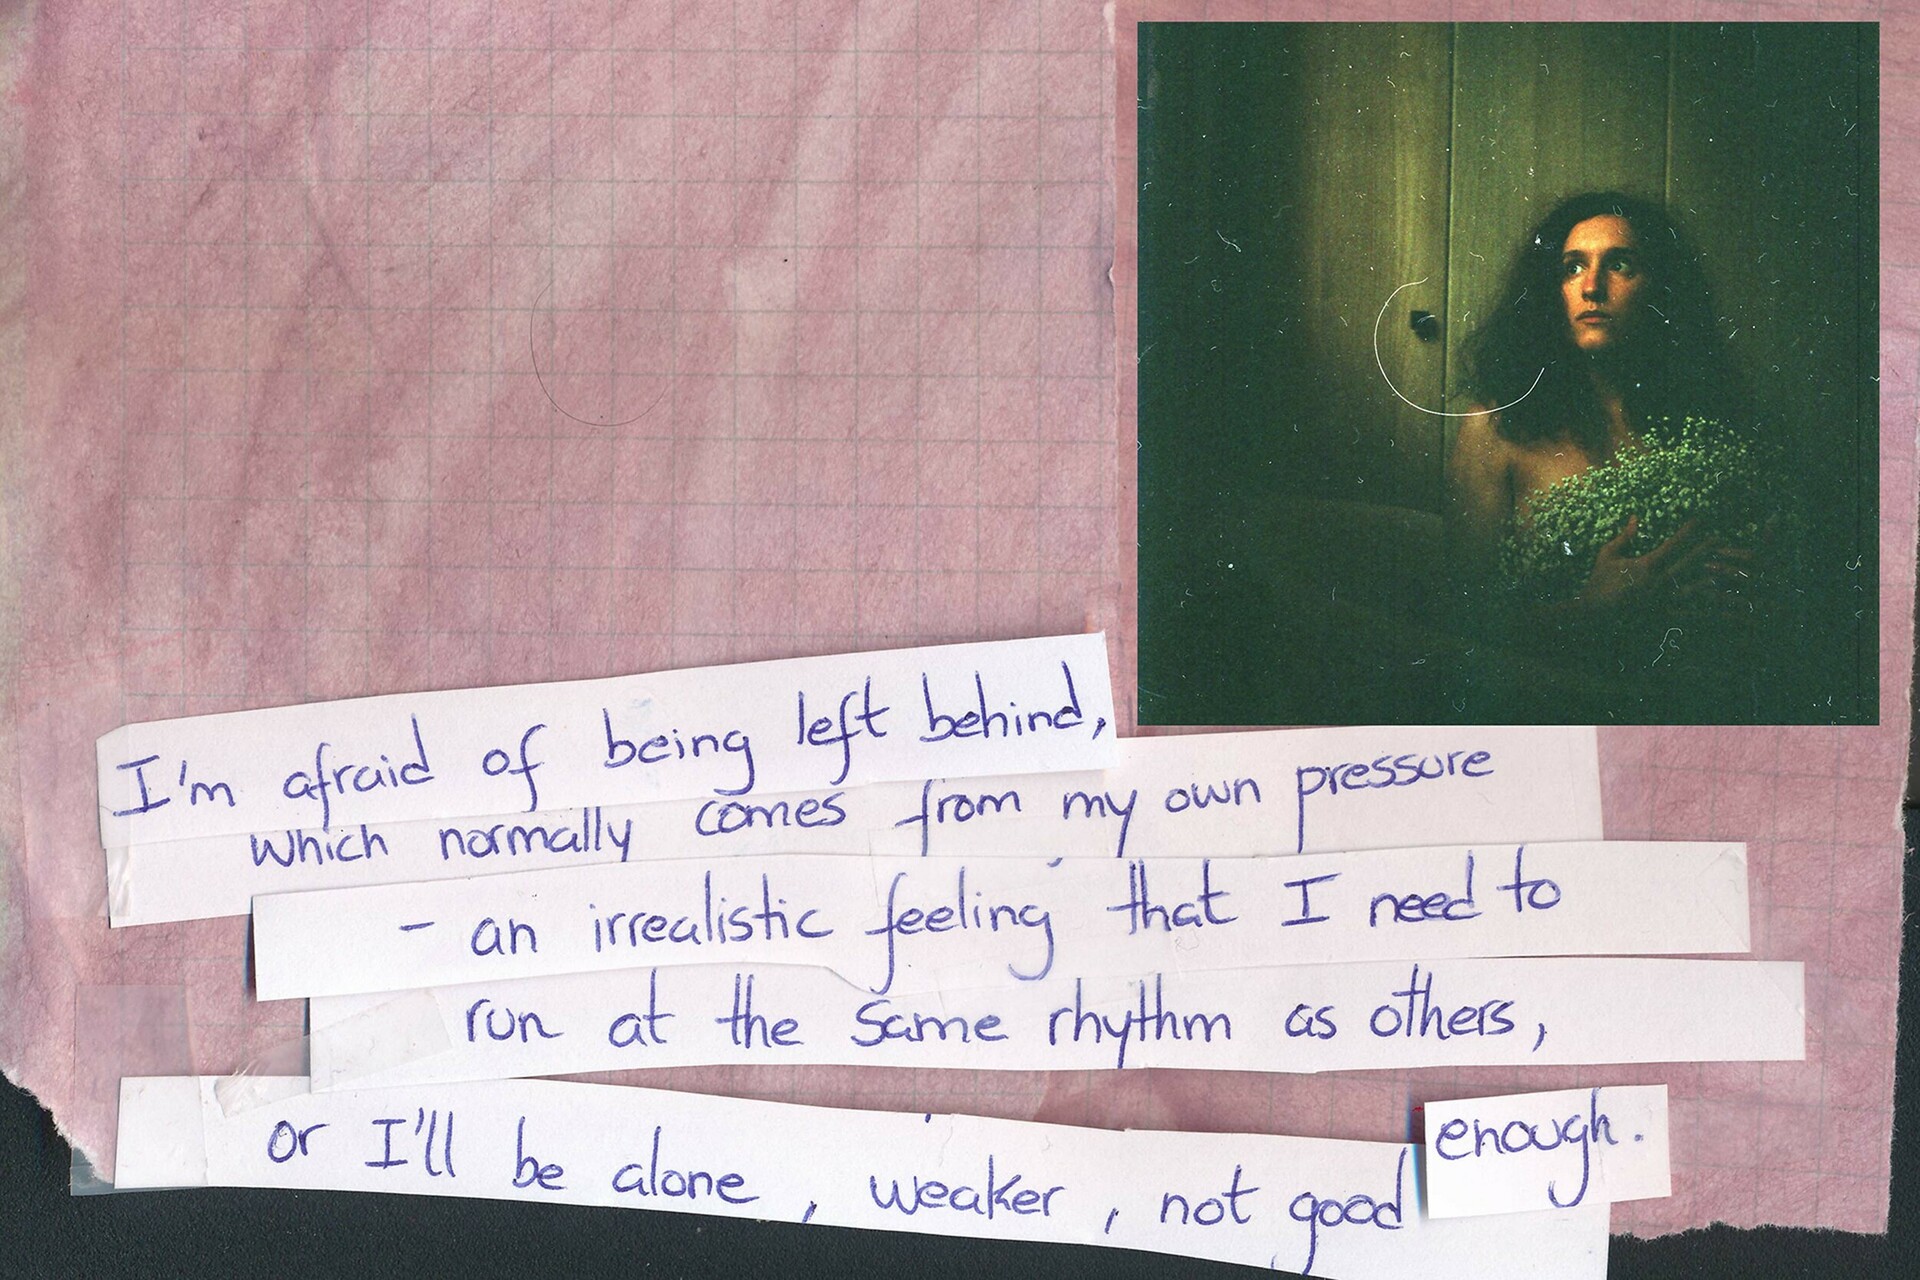 I'm afraid of being left behind,
which normally comes from my own pressure
- an irrealistic feeling that I need to
run at the same rhythm as others,
or I'll be alone, weaker, not good enough.